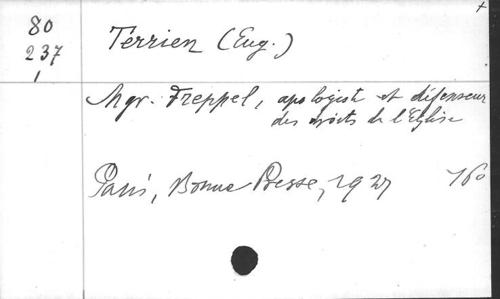 80
237
1
Terrien (Eug.)
Mgr. Freppel, apologiste et défenseur
des droits de l'Eglise
Paris, Bonne Presse, 1927 16º